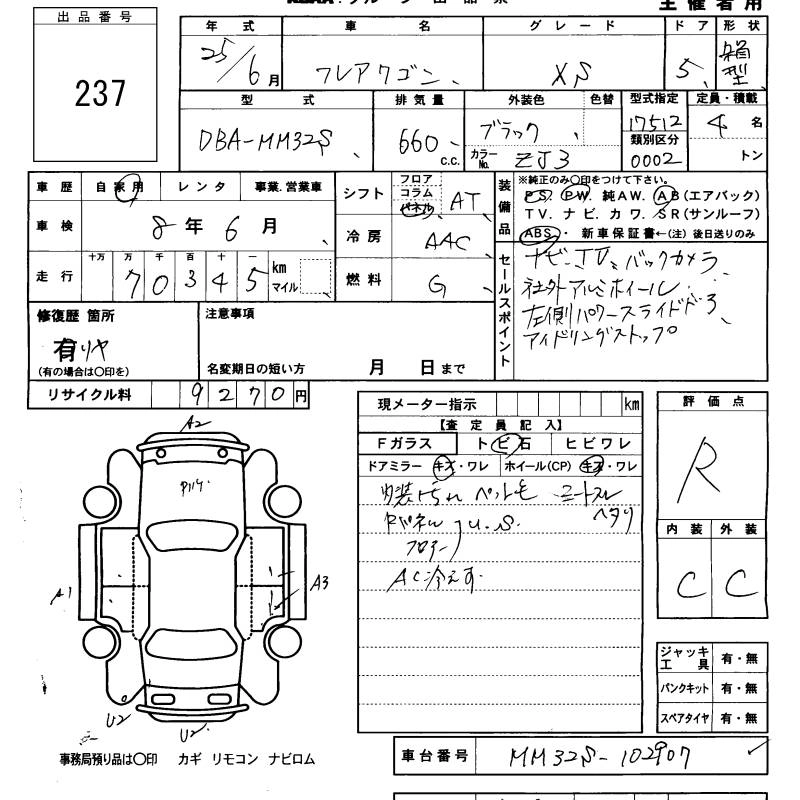 主催者用
出品番号
237
年式 車名 グレード ドア 形状
25/6月 フレアワゴン XS 5 箱型
型式 排気量 外装色 色替 型式指定 定員・積載
DBA-MM32S 660 c.c. ブラック 17512 4名
カラーNo. ZJ3 類別区分 0002 トン
車歴 自家用 レンタ 事業.営業車
車検 8年6月
走行 十万 万 千 百 十 一
70345 km マイル
シフト フロア コラム パネル AT
冷房 AAC
燃料 G
装備品 ※純正のみ○印をつけて下さい。
PS. PW. 純AW. AB(エアバック)
TV. ナビ. カワ. SR(サンルーフ)
ABS. ・新車保証書←(注) 後日送りのみ
セールスポイント
ナビ、TV、バックカメラ
社外アルミホイール
左側パワースライドドア
アイドリングストップ
修復歴 箇所
有 リヤ
(有の場合は○印を)
注意事項
名変期日の短い方 月 日まで
リサイクル料 9270円
現メーター指示 km
【査定員記入】
Fガラス トビ石 ヒビワレ
ドアミラー キズ・ワレ ホイール(CP) キズ・ワレ
内装 ペット毛 シート
ヘタリ
Rパネル U.S.
フロアー
AC冷えず
評価点
R
内装 外装
C C
ジャッキ工具 有・無
パンクキット 有・無
スペアタイヤ 有・無
A2
A1
A3
U2
U2
事務局預り品は○印 カギ リモコン ナビロム
車台番号 MM32S-102907